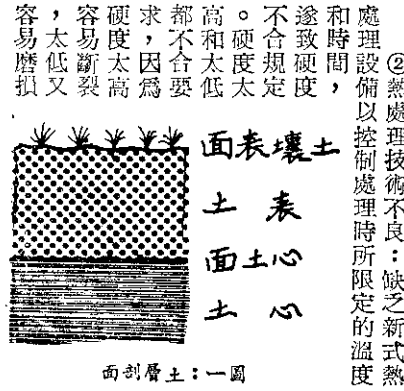 ②熱處理技術不良：缺乏新式熱
處理設備以控制處理時所限定的溫度
和時間，
遂致硬度
不合規定
。硬度太
高和太低
都不合要
求，因爲
硬度太高
容易斷裂
，太低又
容易磨損
土壤表面
表土
心土面
心土
圖一：土層剖面